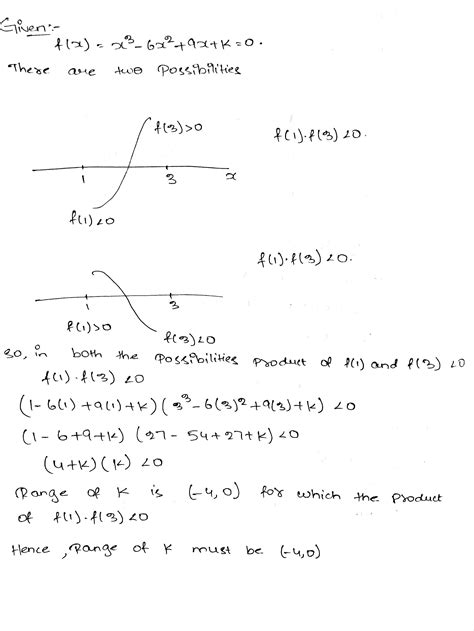 Given:-
f(x) = x³ - 6x² + 9x + K = 0.
There are two Possibilities
f(3)>0
f(1).f(3) <0.
1 3 x
f(1)<0
f(1).f(3) <0.
1 3
f(1)>0
f(3)<0
So, in both the Possibilities Product of f(1) and f(3) <0
f(1).f(3) <0
(1-6(1)+9(1)+K) (3³-6(3)²+9(3)+K) <0
(1-6+9+K) (27-54+27+K) <0
(4+K) (K) <0
Range of K is (-4,0) for which the Product
of f(1).f(3) <0
Hence, Range of K must be (-4,0)